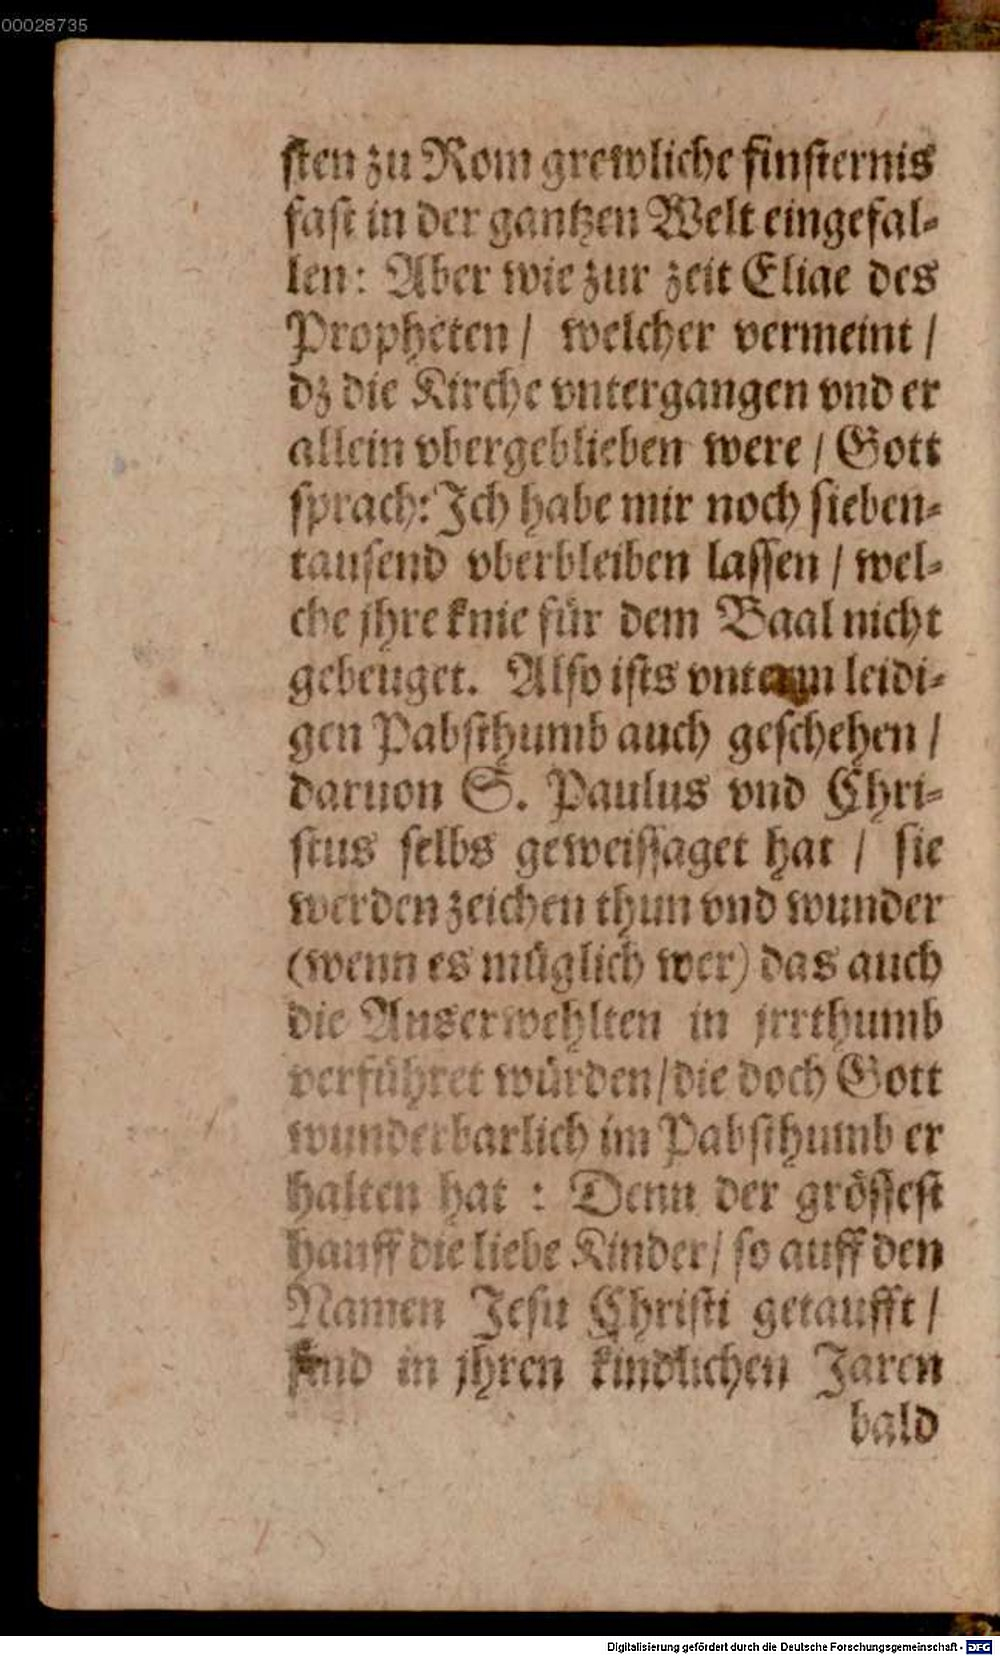 00028735
ſten zu Rom grewliche finſternis
faſt in der gantzen Welt eingefal-
len: Aber wie zur zeit Eliae des
Propheten / welcher vermeint /
dz die Kirche vntergangen vnd er
allein vbergeblieben were / Gott
ſprach: Ich habe mir noch ſieben-
tauſend vberbleiben laſſen / wel-
che jhre knie für dem Baal nicht
gebeuget. Alſo iſts vnterm leidi-
gen Pabſthumb auch geſchehen /
daruon S. Paulus vnd Chri-
ſtus ſelbs geweiſſaget hat / ſie
werden zeichen thun vnd wunder
(wenn es müglich wer) das auch
die Auserwehlten in jrrthumb
verführet würden / die doch Gott
wunderbarlich im Pabſthumb er
halten hat : Denn der gröſſeſt
hauff die liebe Kinder / ſo auff den
Namen Jeſu Chriſti getaufft /
ſind in jhren kindlichen Jaren
bald
Digitalisierung gefördert durch die Deutsche Forschungsgemeinschaft - DFG